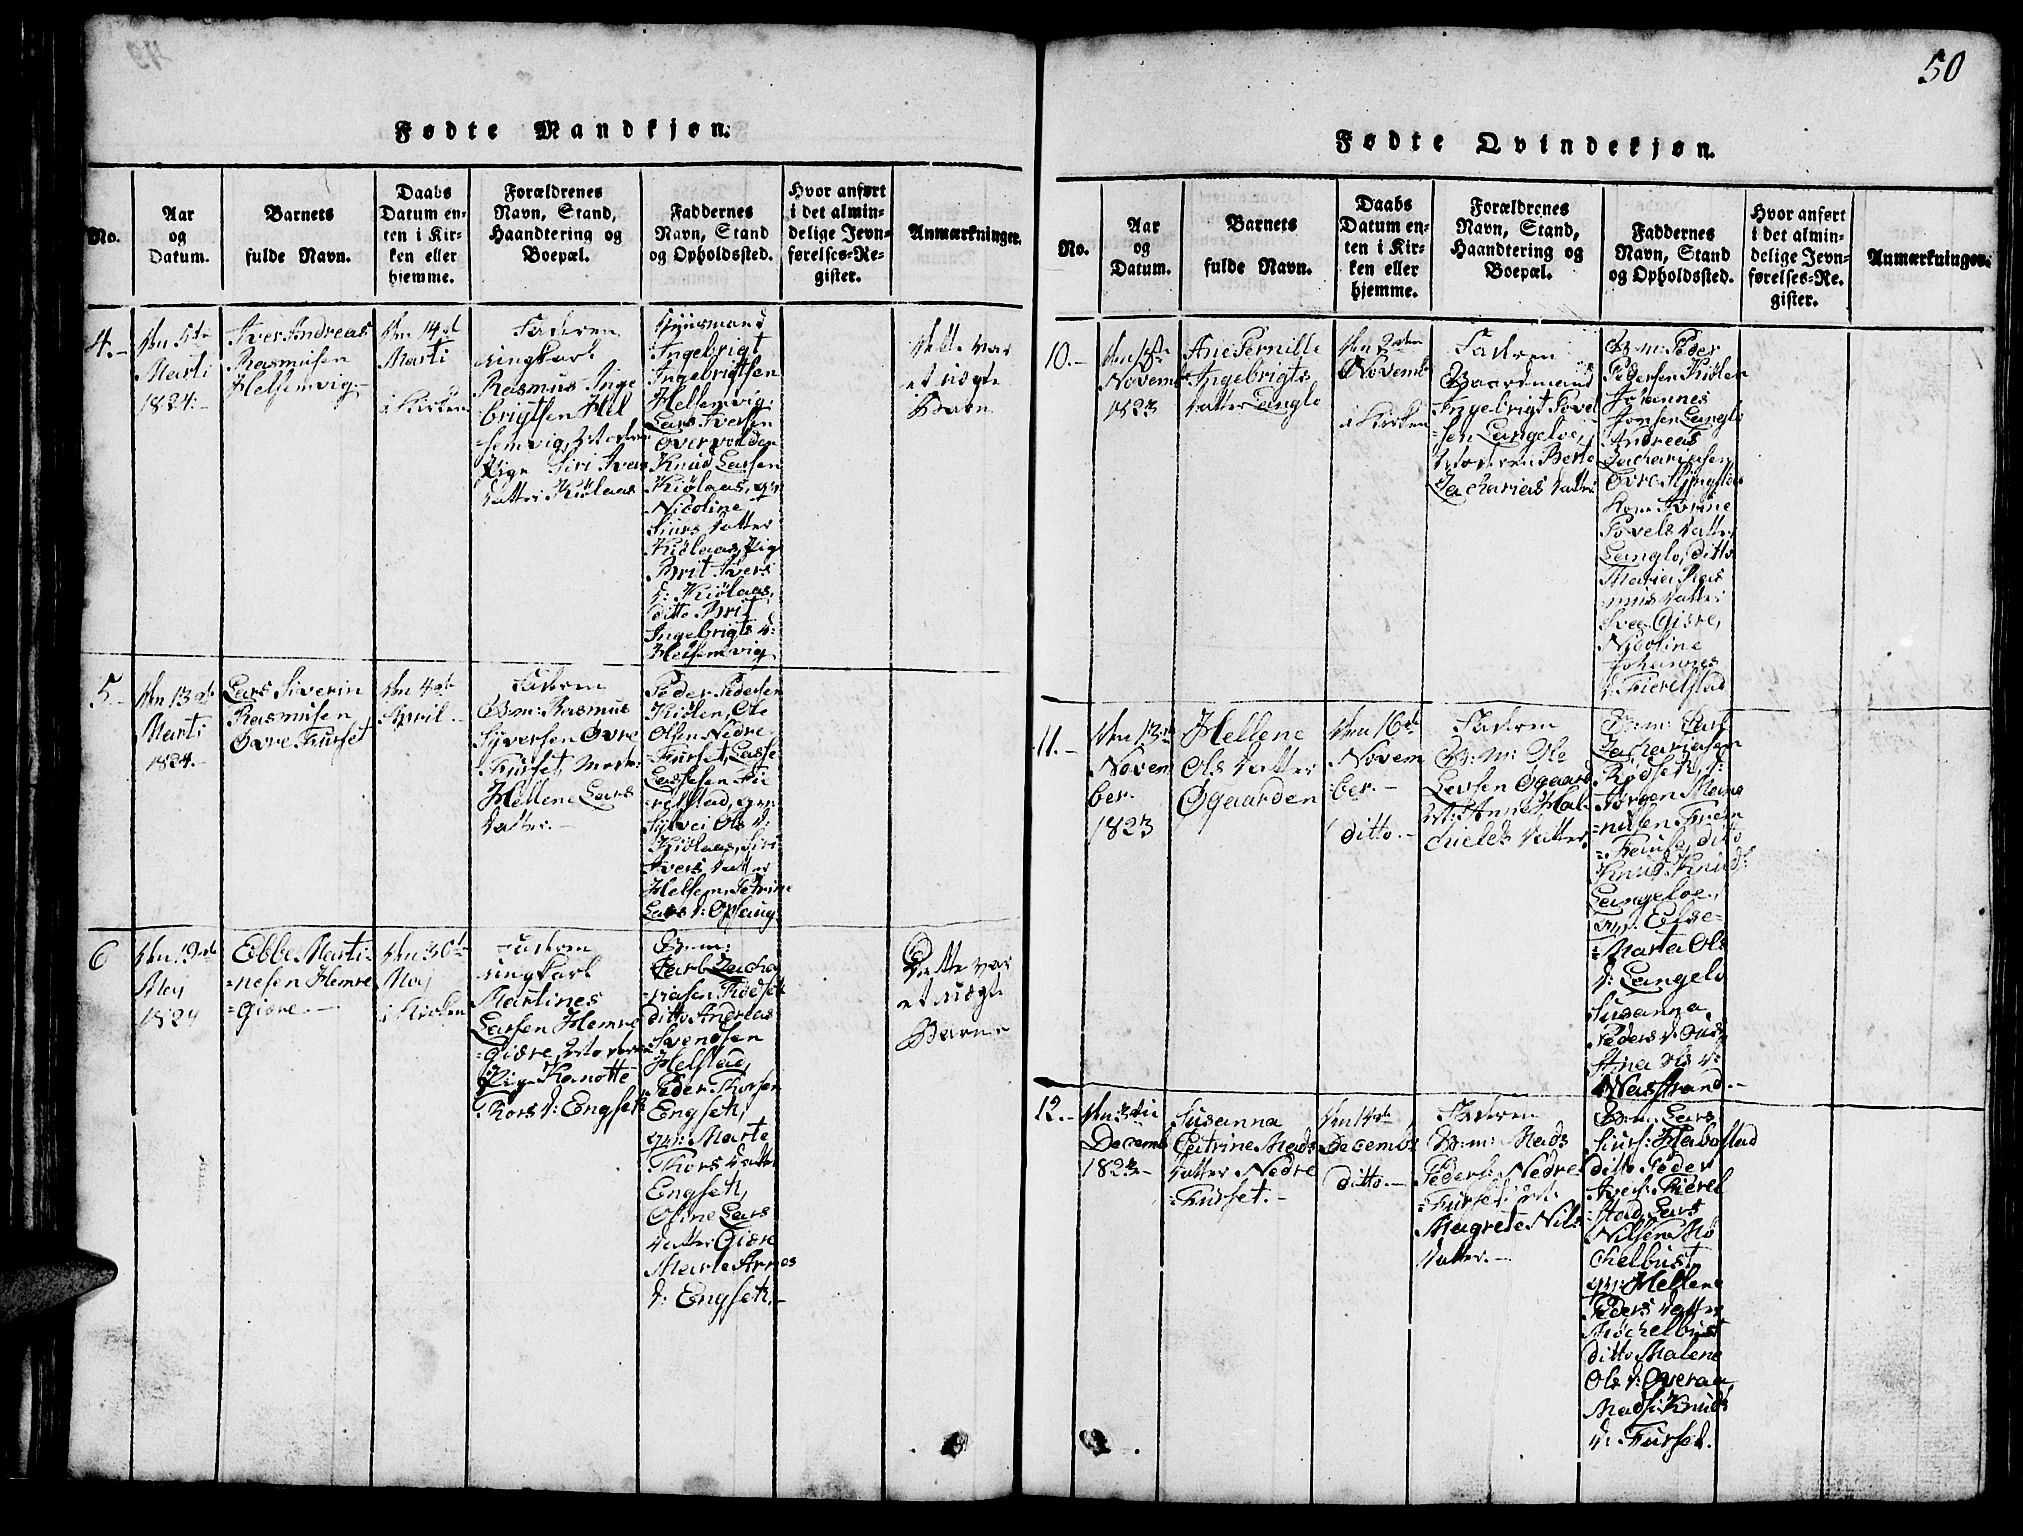 50
Fødte Mandkjøn.
No.
Aar
og
Datum.
Barnets
fulde Navn.
Daabs
Datum en-
ten i Kir-
ken eller
hjemme.
Forældrenes
Navn, Stand,
Haandtering og
Boepæl.
Faddernes
Navn, Stand
og Opholdssted.
Hvor anført
i det almin-
delige Jevn-
førelses-Re-
gister.
Anmærkninger.
4.-
den 5te
Marti
1824.-
Iver Andreas
Rasmusen
Helsemvig.-
den 14de
Marti
i Kirken
Faderen
ungkarl
Rasmus Inge
brigtsen Hel
semvig, Moderen
Pige Siri Ivers
datter Kiølaas
Huusmand
Ingebrigt
Ingebrigtsen
Helsemvig.
Lars Iversen
Overvolden
Knud Larsen
Kiølaas, qv:
Nicoline
Siurs datter
Kiølaas, Pig
Brit Ivers
d: Kiølaas,
ditto Brit
Ingebrigts d:
Helsemvig
Dette var
et uægte
Barn
5.-
den 13de
Marti
1824.-
Lars Siverin
Rasmusen
Øvre Furset
den 4de
April.-
Faderen
G: m: Rasmus
Syversen Øvre
Furset, Moder:
Hellene Lars
datter.-
Peder Pedersen
Kiølen, Ole
Olsen Nedre
Furset, Lasse
Lassesen Fie
relstad, qv:
Sylvei Ols d:
Kiølaas, Siri
Ivers datter
Helsem, Petrine
Lars d: Opsaug
6
den 19de
May
1824
Ebbe Marti-
=nesen Hemre
=Giøre.-
den 30te
May
i Kirken
Faderen
ungkarl
Martines
Larsen Hemre
=Giøre, Moderen
Pige Kanotte
Thors d: Engseth
G: m:
Carl Zacha
riasen Rødseth
ditto Andreas
Svendsen
Helstad,
Peder Thorsen
Engseth,
qv: Marte
Thors datter
Engseth,
Oline Lars
datter Giøre
Marte Arnes
d: Engseth.-
Dette var
et uægte
Barn
Fødte Qvindekjøn.
No.
Aar
og
Datum.
Barnets
fulde Navn.
Daabs
Datum en-
ten i Kir-
ken eller
hjemme.
Forældrenes
Navn, Stand,
Haandtering og
Boepæl.
Faddernes
Navn, Stand
og Opholdssted.
Hvor anført
i det almin-
delige Jevn-
førelses-Re-
gister.
Anmærkninger.
10.-
den 1ste
Novemb
1823
Ane Pernille
Ingebrigts
datter Langlo
den 2den
Novemb
i Kirken
Faderen
Gaardmand
Ingebrigt Povel
=sen Langeloe,
Moderen Berte
Zacharias datter
G: m: Peder
Pedersen Kiølen
Johannes
Jonsen Langlo
Andreas
Zachariasen
Øvre
Kone Iverine
Povels datter
Langlo, ditto
Maria Ras
mus datter
Giøre,
Nicoline
Johannes
d: Fierelstad
11.-
den 13de
Novem
ber.
1823
Hellene
Ols datter
Øgaarden
den 16de
Novem
ber.-
ditto.-
Faderen
G: m: Ole
Larsen Øgaard
M: Anne Mal-
chiels datter
G: m: Carl
Zachariasen
Rødseth,
Jørgen Magne
=nusen Friem
=Fause, ditto
Knud Knuds:
Langeloe.,
qv: Else-
=Marta Ols
d: Langelo
Susanna
Peders d:
Stina
Nasstrand.-
12.-
den 3die
Decemb
1823.-
Susanna
Catrine Mads
datter Nedre
=Furset.-
den 14de
Decembr
ditto.-
Faderen
G: m: Mads
Peders: Nedre
=Furset: M:
Magrete Nils
datter.-
G: m: Lars
Siurs: Habostad
ditto Peder
Ivers: Fierel
=stad, Lars
Nilsen Mø
chelbust,
qv: Hellene
Peders datter
Møchelbust
ditto Malene
Ols d: Overaa,
Madsi Knuds
d: Furset.